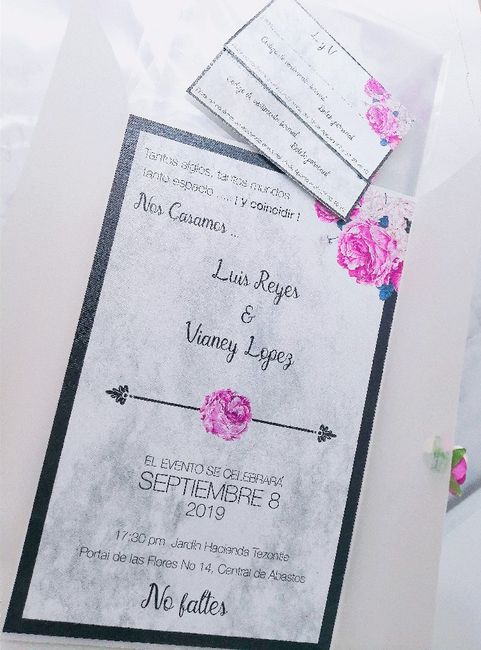 L y V
Código de vestimenta formal
Boleto personal
Código de vestimenta formal
Boleto personal
Tantos siglos, tantos mundos
tanto espacio ..... ¡ y coincidir !
Nos Casamos ...
Luis Reyes
&
Vianey Lopez
EL EVENTO SE CELEBRARÁ
SEPTIEMBRE 8
2019
17:30 pm Jardín Hacienda Tezontle
Portal de las Flores No 14, Central de Abastos
No faltes